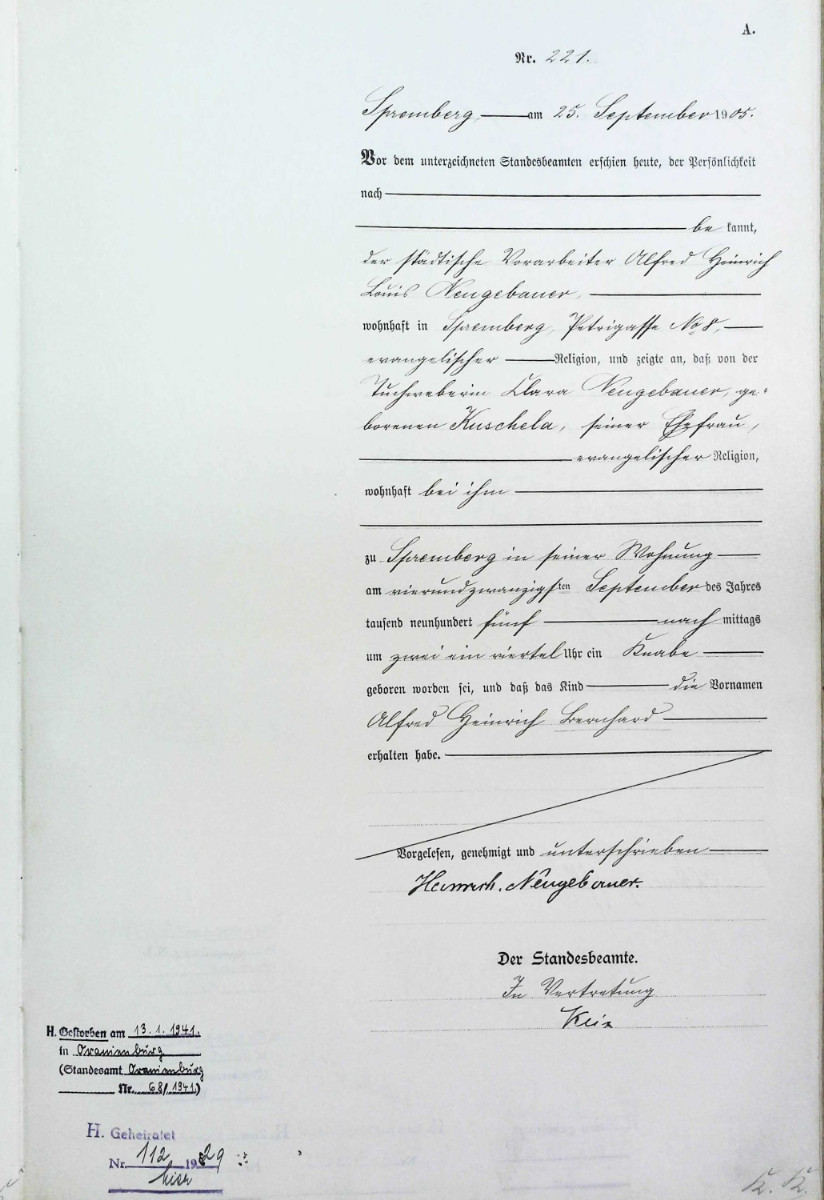 A.
Nr. 221.
Spremberg, am 25. September 1905.
Vor dem unterzeichneten Standesbeamten erschien heute, der Persönlichkeit
nach
be kannt,
der städtische Vorarbeiter Alfred Heinrich
Louis Neugebauer,
wohnhaft in Spremberg, Petrigasse No 8,
evangelischer Religion, und zeigte an, daß von der
Tuchweberin Klara Neugebauer, ge-
borenen Kuschela, seiner Ehefrau,
evangelischer Religion,
wohnhaft bei ihm
zu Spremberg in seiner Wohnung
am vierundzwanzigsten September des Jahres
tausend neunhundert fünf nach mittags
um zwei ein viertel Uhr ein Knabe
geboren worden sei, und daß das Kind die Vornamen
Alfred Heinrich Bernhard
erhalten habe.
Vorgelesen, genehmigt und unterschrieben
Heinrich. Neugebauer.
Der Standesbeamte.
In Vertretung
H. Gestorben am 13.1.1941.
in Oranienburg
(Standesamt Oranienburg
Nr. 68/1941.)
H. Geheiratet
Nr. 112 1929
hier